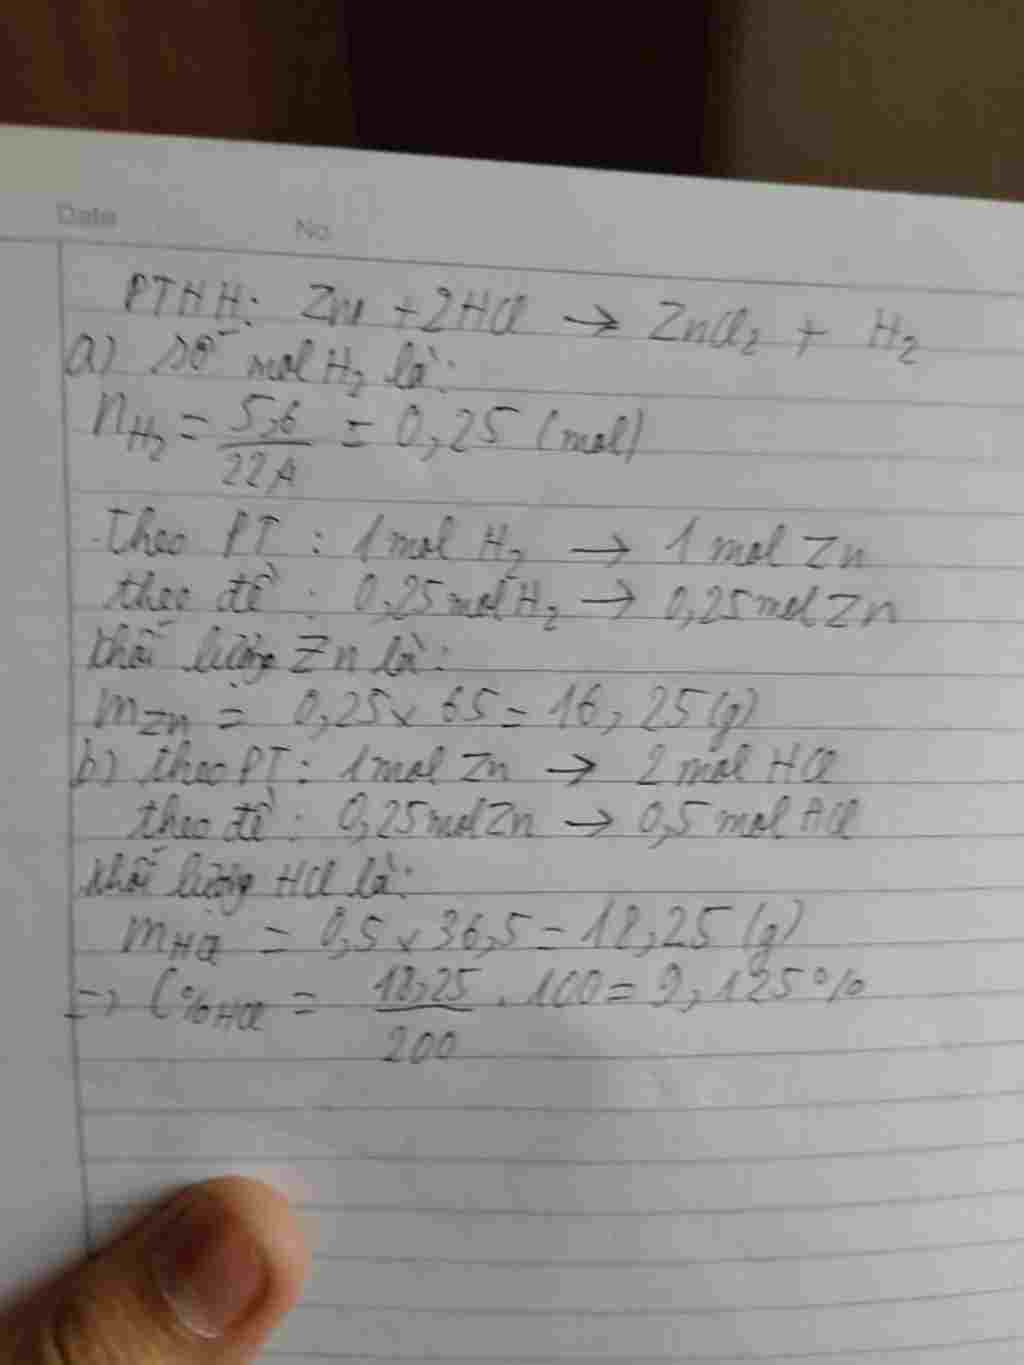 Date No.
PTHH: Zn + 2HCl → ZnCl₂ + H₂
a) số mol H₂ là:
nH₂ = 5,6/22,4 = 0,25 (mol)
theo PT : 1 mol H₂ → 1 mol Zn
theo đề : 0,25 mol H₂ → 0,25 mol Zn
khối lượng Zn là:
mZn = 0,25 x 65 = 16,25 (g)
b) theo PT: 1 mol Zn → 2 mol HCl
theo đề : 0,25 mol Zn → 0,5 mol HCl
khối lượng HCl là:
mHCl = 0,5 x 36,5 = 18,25 (g)
=> C%HCl = 18,25/200 . 100 = 9,125%